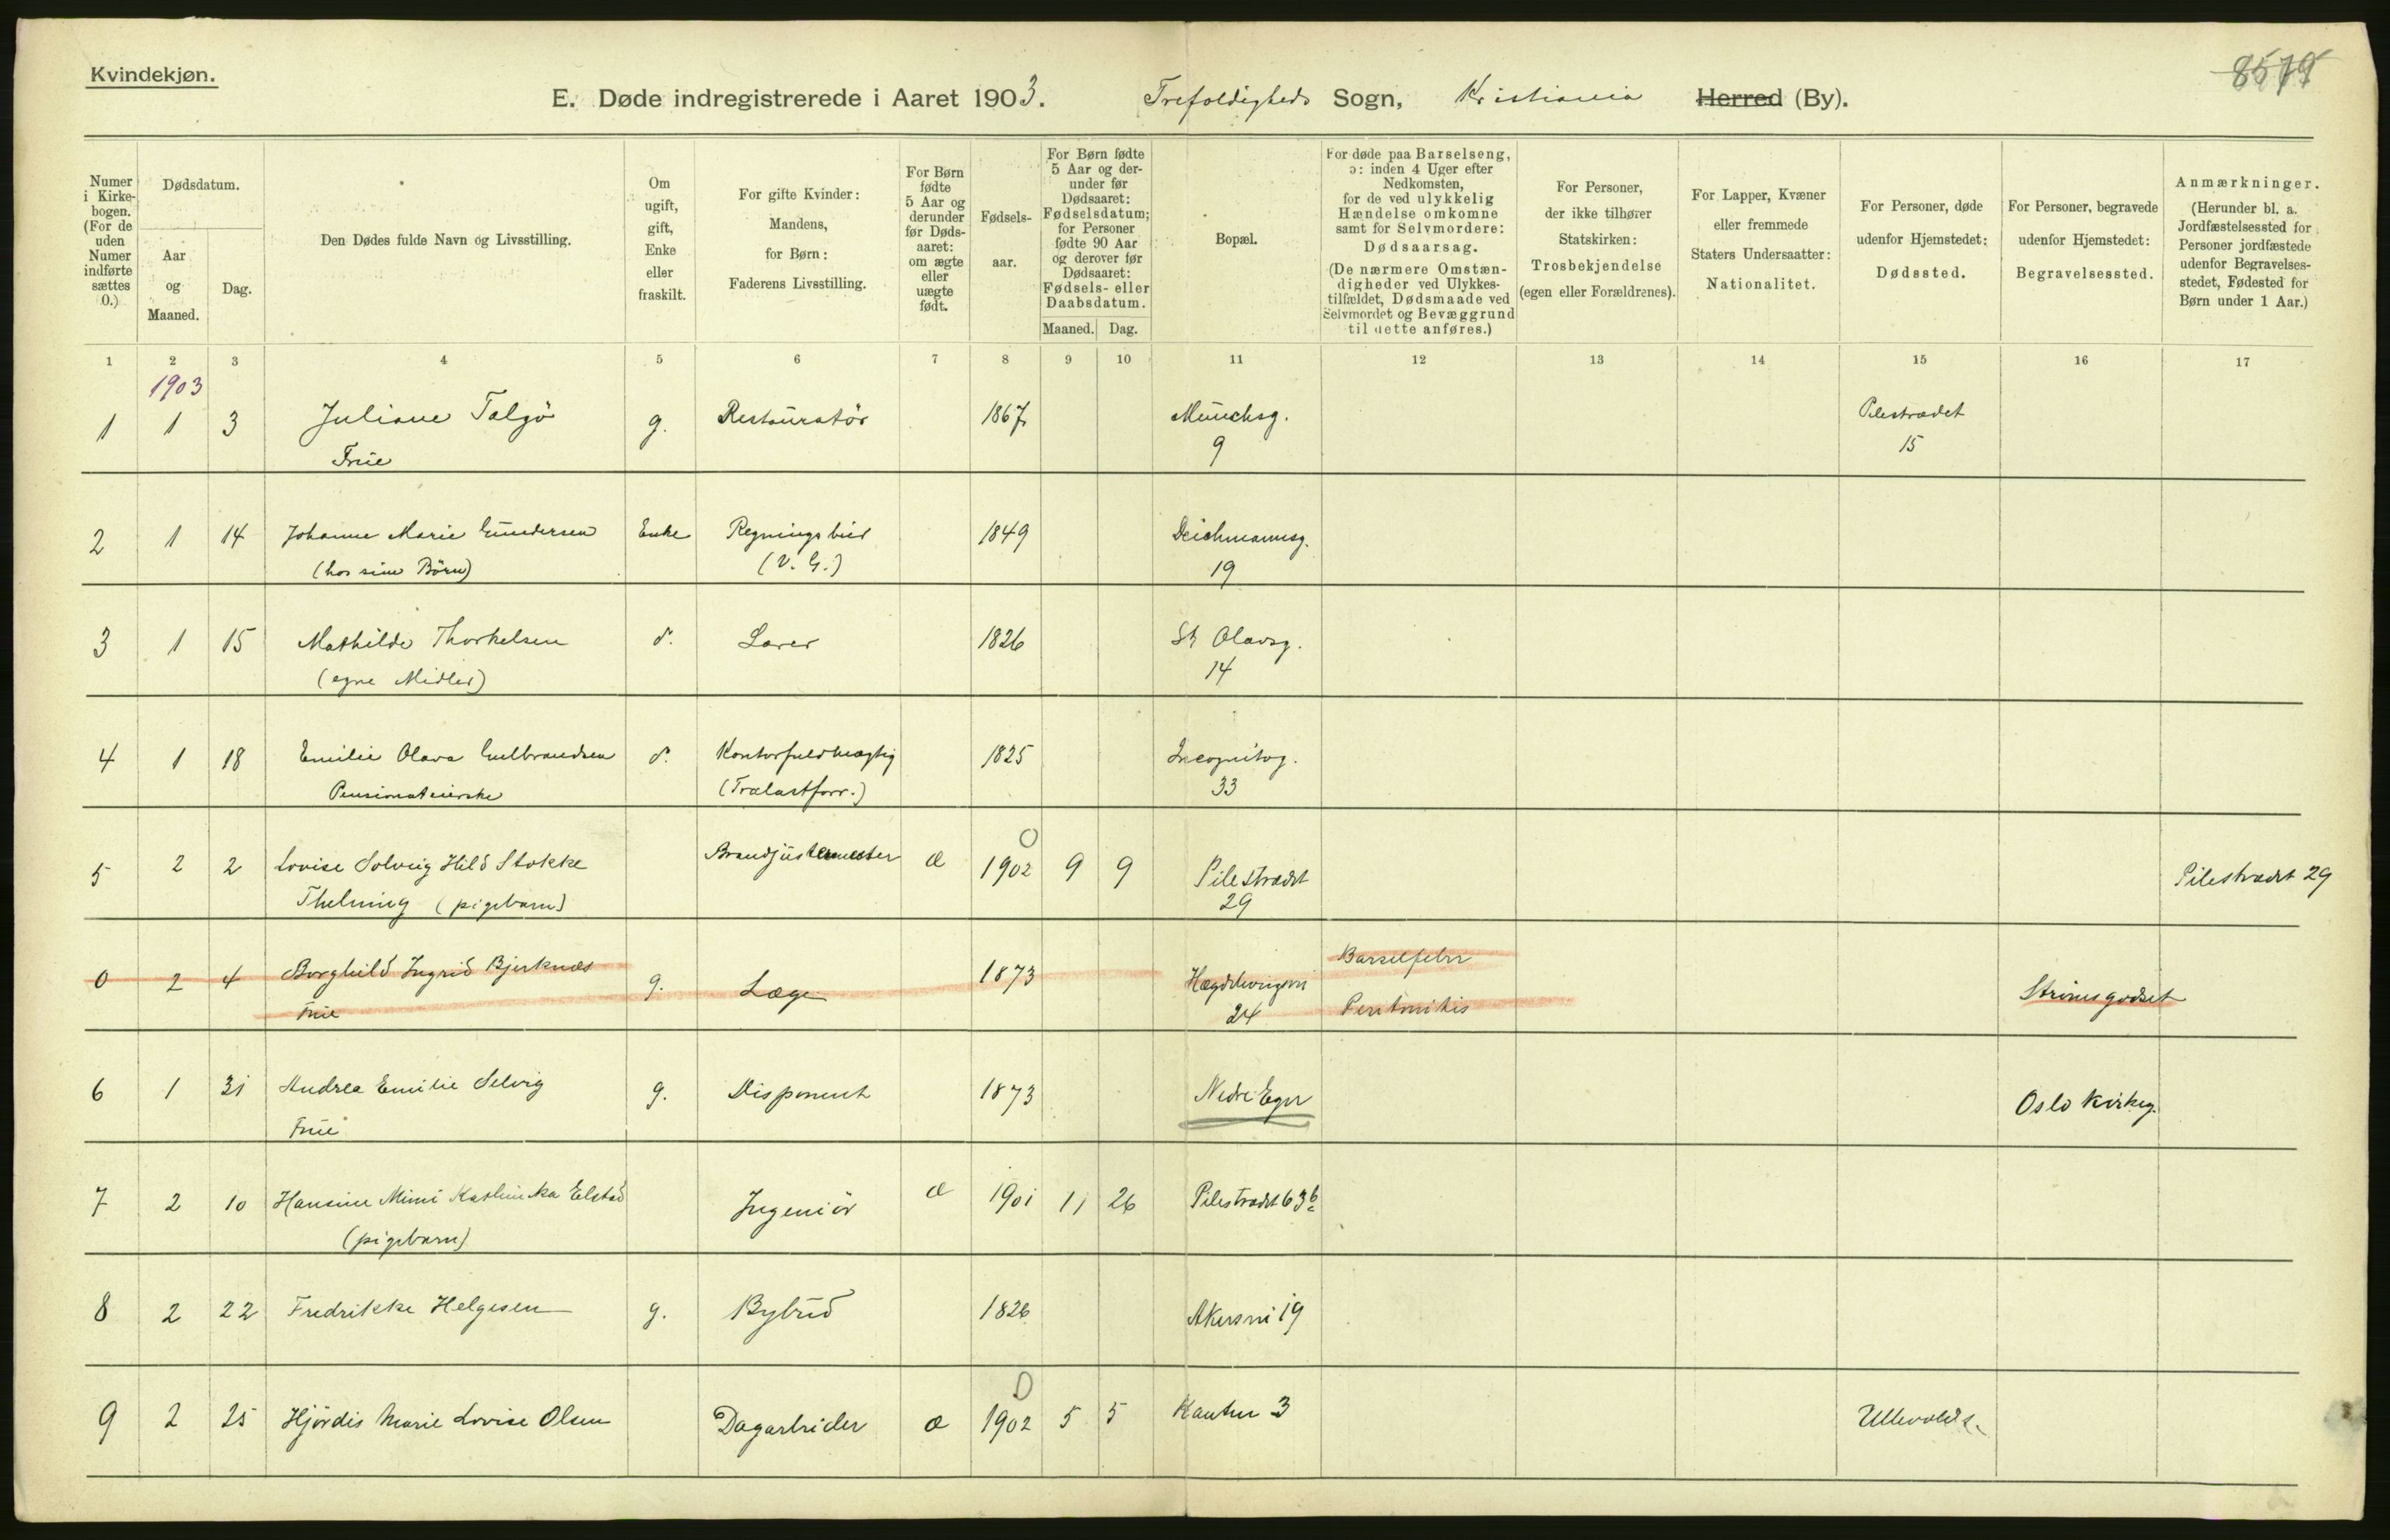 Kvindekjøn.
8579
E. Døde indregistrerede i Aaret 1903. Trefoldigheds Sogn, Kristiania Herred (By).
Numer i Kirkebogen. (For de uden Numer indførte sættes 0.)
Dødsdatum.
Aar og Maaned.
Dag.
Den Dødes fulde Navn og Livsstilling.
Om ugift, gift, Enke eller fraskilt.
For gifte Kvinder: Mandens, for Børn: Faderens Livsstilling.
For Børn fødte 5 Aar og derunder før Dødsaaret: om ægte eller uægte født.
Fødselsaar.
For Børn fødte 5 Aar og derunder før Dødsaaret: Fødselsdatum; for Personer fødte 90 Aar og derover før Dødsaaret: Fødsels- eller Daabsdatum.
Maaned. Dag.
Bopæl.
For døde paa Barselseng, ɔ: inden 4 Uger efter Nedkomsten, for de ved ulykkelig Hændelse omkomne samt for Selvmordere: Dødsaarsag. (De nærmere Omstændigheder ved Ulykkestilfældet, Dødsmaade ved Selvmordet og Bevæggrund til dette anføres.)
For Personer, der ikke tilhører Statskirken: Trosbekjendelse (egen eller Forældrenes).
For Lapper, Kvæner eller fremmede Staters Undersaatter: Nationalitet.
For Personer, døde udenfor Hjemstedet: Dødssted.
For Personer, begravede udenfor Hjemstedet: Begravelsessted.
Anmærkninger. (Herunder bl. a. Jordfæstelsessted for Personer jordfæstede udenfor Begravelsesstedet, Fødested for Børn under 1 Aar.)
1 2 3 4 5 6 7 8 9 10 11 12 13 14 15 16 17
1903
1 1 3 Juliane Talgö g. Restauratör 1867 Munchsg. Pilestrædet
Frue 9 15
2 1 14 Johanne Marie Gundersen Enke Regningsbud 1849 Deichmannsg.
(hos sine Börn) (V. G.) 19
3 1 15 Mathilde Thorkelsen d. Lærer 1826 St Olavsg.
(egne Midler) 14
4 1 18 Emilie Olava Gulbrandsen d. Kontorfuldmægtig 1825 Incognitog.
Pensionateierske (Trælastforr.) 33
5 2 2 Lovise Solveig Hild Stokke æ 1902 9 9 Pilestrædet Pilestrædet 29
Thelming (pigebarn) 29
0 2 4 Borghild Ingrid Bjerknæs g. Læge 1873 Hægdehaugsvei Barselfeber Strömsgodset
Frue 24 Peritonitis
6 1 31 Andrea Emilie Selvig g. Disponent 1873 Nedre Eger Oslo Kirkeg.
Frue
7 2 10 Hansine Mimi Kathinka Elstad Ingeniör æ 1901 11 26 Pilestrædet 63b
(pigebarn)
8 2 22 Fredrikke Helgesen g. Bybud 1826 Akersvei 19
9 2 25 Hjördis Marie Lovise Olsen Dagarbeider æ 1902 5 5 3 Ullevolds.